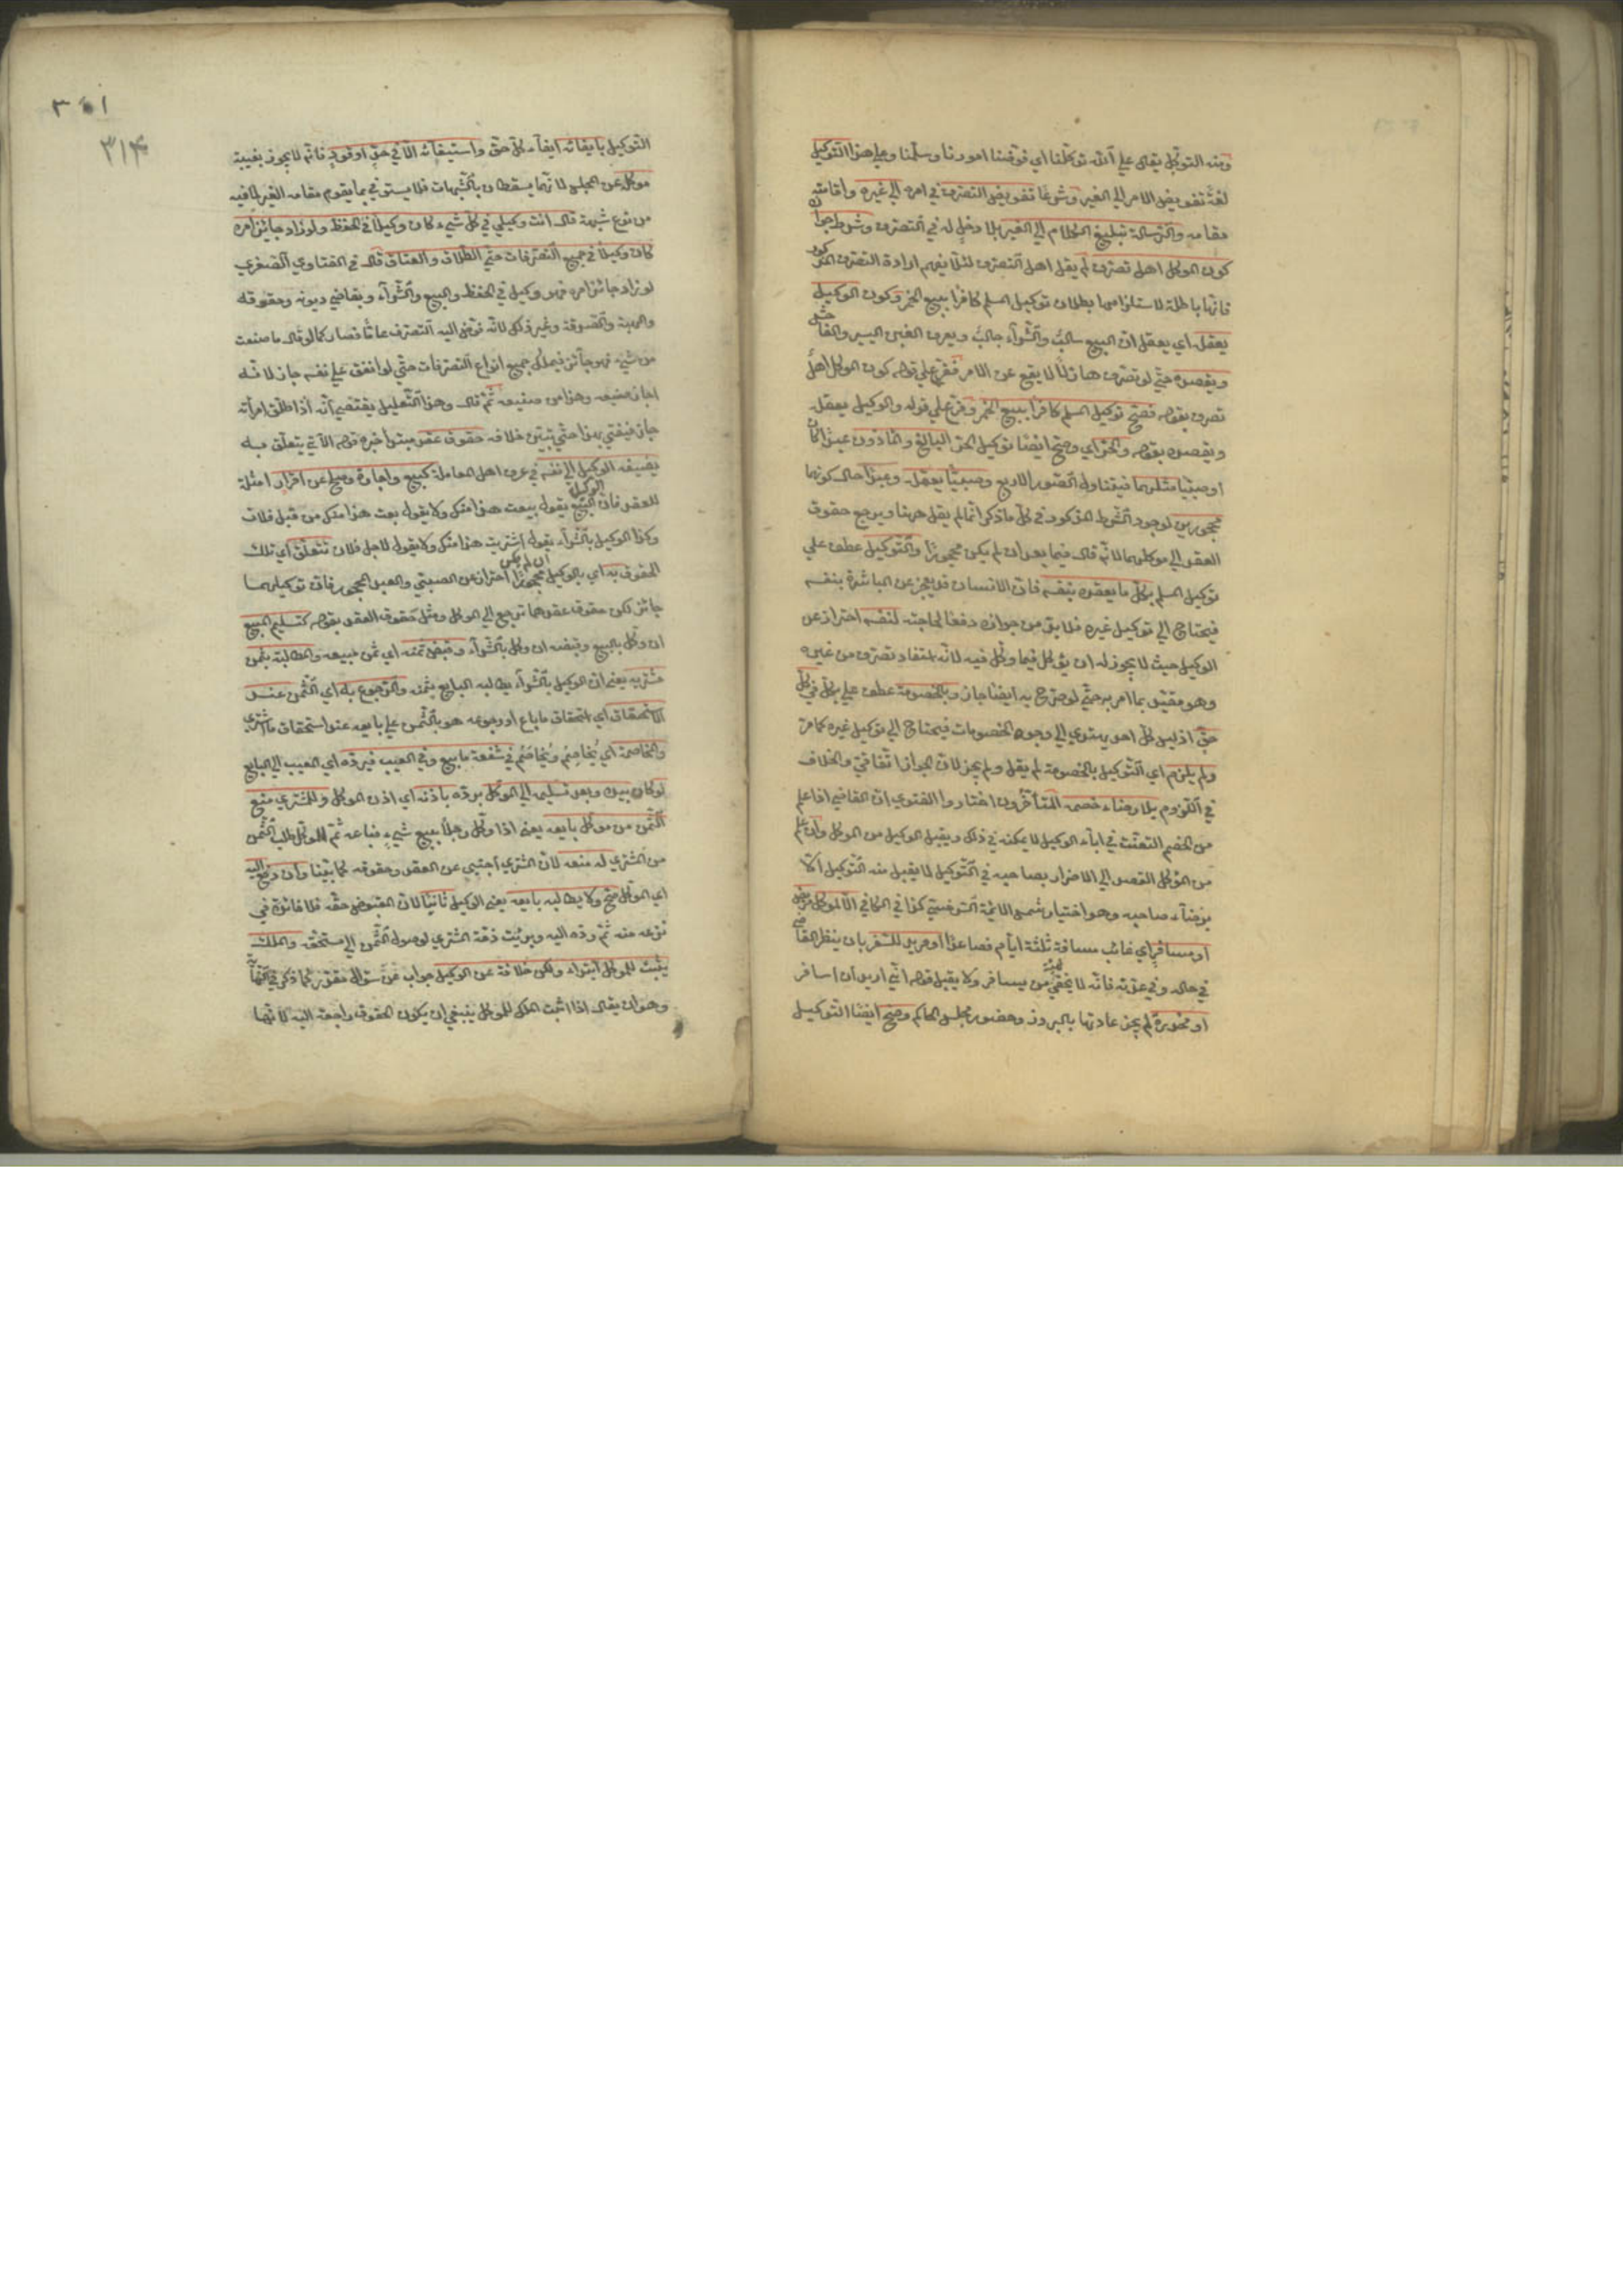 ومنه التوكل يقال على الله توكلنا اي فوضنا امورنا وسلمنا وعلى هذا التوكيل
لغة تفويض الامر الى الغير وشرعا تفويض التصرف في امره الى غيره واقامته
مقامه والرسالة تبليغ الكلام الى الغير بلا دخل له في التصرف وشرط جوازه
كون الموكل اهل تصرف لم يقل اهل التصرف لئلا يفهم ارادة التصرف المذكور
فانها باطلة لاستلزامها بطلان توكيل المسلم كافرا ببيع الخمر وكون الوكيل
يعقل اي يعقل ان البيع سالب والشراء جالب ويعرف الغبن اليسير والفاحش
ويقصده حتى لو تصرف هازلا لا يقع عن الامر ففرع على قوله كون الموكل اهل
تصرف بقوله فصح توكيل المسلم كافرا ببيع الخمر وفرع على قوله والوكيل يعقل
ويقصده بقوله والحر اي وصح ايضا توكيل الحر البالغ والماذون عبدا كان
او صبيا مثلهما فيتناول الصور الاربع وصبيا يعقل وعبدا حال كونهما
محجورين لوجود الشرط المذكور في كل ما ذكر انما لم يقل ههنا ويرجع حقوق
العقد الى موكلهما لانه قال فيما بعد ان لم يكن محجورا والتوكيل عطف على
توكيل المسلم بكل ما يعقده بنفسه فان الانسان قد يعجز عن المباشرة بنفسه
فيحتاج الى توكيل غيره فلا بد من جوازه دفعا لحاجته لنفسه احتراز عن
الوكيل حيث لا يجوز له ان يوكل فيما وكل فيه لانه استفاد تصرف من غيره
وهو مقيد بما امر به حتى لو صرح به ايضا جاز وبالخصومة عطف على بكل في كل
حق اذ ليس كل احد يهتدي الى وجوه الخصومات فيحتاج الى توكيل غيره كما مر
ولم يلزم اي التوكيل بالخصومة لم يقل ولم يجز لان الجواز اتفاقي والخلاف
في اللزوم بلا رضاء خصمه المتأخرون اختاروا الفتوى ان القاضي اذا علم
من الخصم التعنت في اباء الوكيل لا يمكنه في ذلك ويقبل الوكيل من الموكل وان علم
من الموكل القصد الى الاضرار بصاحبه في التوكيل لا يقبل منه التوكيل الا
برضاء صاحبه وهو اختيار شمس الائمة السرخسي كذا في الكافي الا لموكل مريض
او مسافر اي غائب مسافة ثلثة ايام فصاعدا او مريد للسفر بان ينظر القاضي
في حاله وفي عدته فانه لا يخفى هيئة من يسافر ولا يقبل قوله اني اريد ان اسافر
او مخدرة لم يجز عادتها بالبروز وحضور مجلس الحاكم وصح ايضا التوكيل
٣٥١
٣١٤
التوكيل بايفائه ايفاء كل حق واستيفائه الا في حد او قود فانه لا يجوز بغيبة
موكل عن المجلس لانهما يسقطان بالشبهات فلا يستوفي بما يقوم مقام الغير لما فيه
من نوع شبهة قال انت وكيلي في كل شيء كان وكيلا في الحفظ ولو زاد جائز امره
كان وكيلا في جميع التصرفات حتى الطلاق والعتاق قال في الفتاوي الصغرى
لو زاد جائز امره فهو وكيل في الحفظ والبيع والشراء وبقاضي ديونه وحقوقه
والهبة والصدقة وغير ذلك لانه فوض اليه التصرف عاما فصار كما لو قال ما صنعت
من شيء فهو جائز فيملك جميع انواع التصرفات حتى لو انفق على نفسه جاز لانه
اجاز صنيعه وهذا من صنيعه ثم قال وهذا التعليل يقتضي انه اذا طلق امرأته
جاز فيفتي بهذا حتى يتبين خلافه حقوق عقد مبتدأ خبره قوله الآتي يتعلق به
يضيفه الوكيل الى نفسه في عرف اهل المعاملة كبيع واجارة وصلح عن اقرار امثلة
للعقد فان الوكيل بالبيع يقول بعت هذا منك ولا يقول بعت هذا منك من قبل فلان
وكذا الوكيل بالشراء يقول اشتريت هذا منك ولا يقول لاجل فلان تتعلق اي تلك
الحقوق به اي بالوكيل ان لم يكن محجورا احتراز عن الصبي والعبد المحجور فان توكيلهما
جائز لكن حقوق عقدهما ترجع الى الموكل ومثل حقوق العقد بقوله كتسليم المبيع
ان وكل بالبيع وقبضه ان وكل بالشراء وقبض ثمنه اي ثمن مبيعه والمطالبة بثمن
مشتريه يعني ان الوكيل بالشراء يطالبه البايع بثمنه والرجوع به اي الثمن عند
الاستحقاق اي استحقاق ما باع او رجوعه هو بالثمن على بايعه عند استحقاق ما اشترى
والمخاصمة اي يُخاصِم ويُخاصَم في شفعة ما بيع وفي العيب فيرده اي العيب الى البايع
لو كان بيده وبعد تسليمه الى الموكل يرده باذنه اي اذن الموكل وللمشتري منع
الثمن من موكل بايعه يعني اذا وكل رجلا ببيع شيء فباعه ثم الموكل طلب الثمن
من المشتري له منعه لان المشتري اجنبي عن العقد وحقوقه كما بينا وان دفع اليه
اي الموكل صح ولا يطالبه بايعه يعني الوكيل ثانيا لان المقبوض حقه فلا فائدة في
نزعه منه ثم رده اليه وبرئت ذمة المشتري لوصول الثمن الى مستحقه والملك
يثبت للموكل ابتداء ولكن خلافة عن الوكيل جواب عن سؤال مقدر كما ذكر في الكفاية
وهو ان يقال اذا اثبت الملك للموكل ينبغي ان يكون الحقوق راجعة اليه لانها